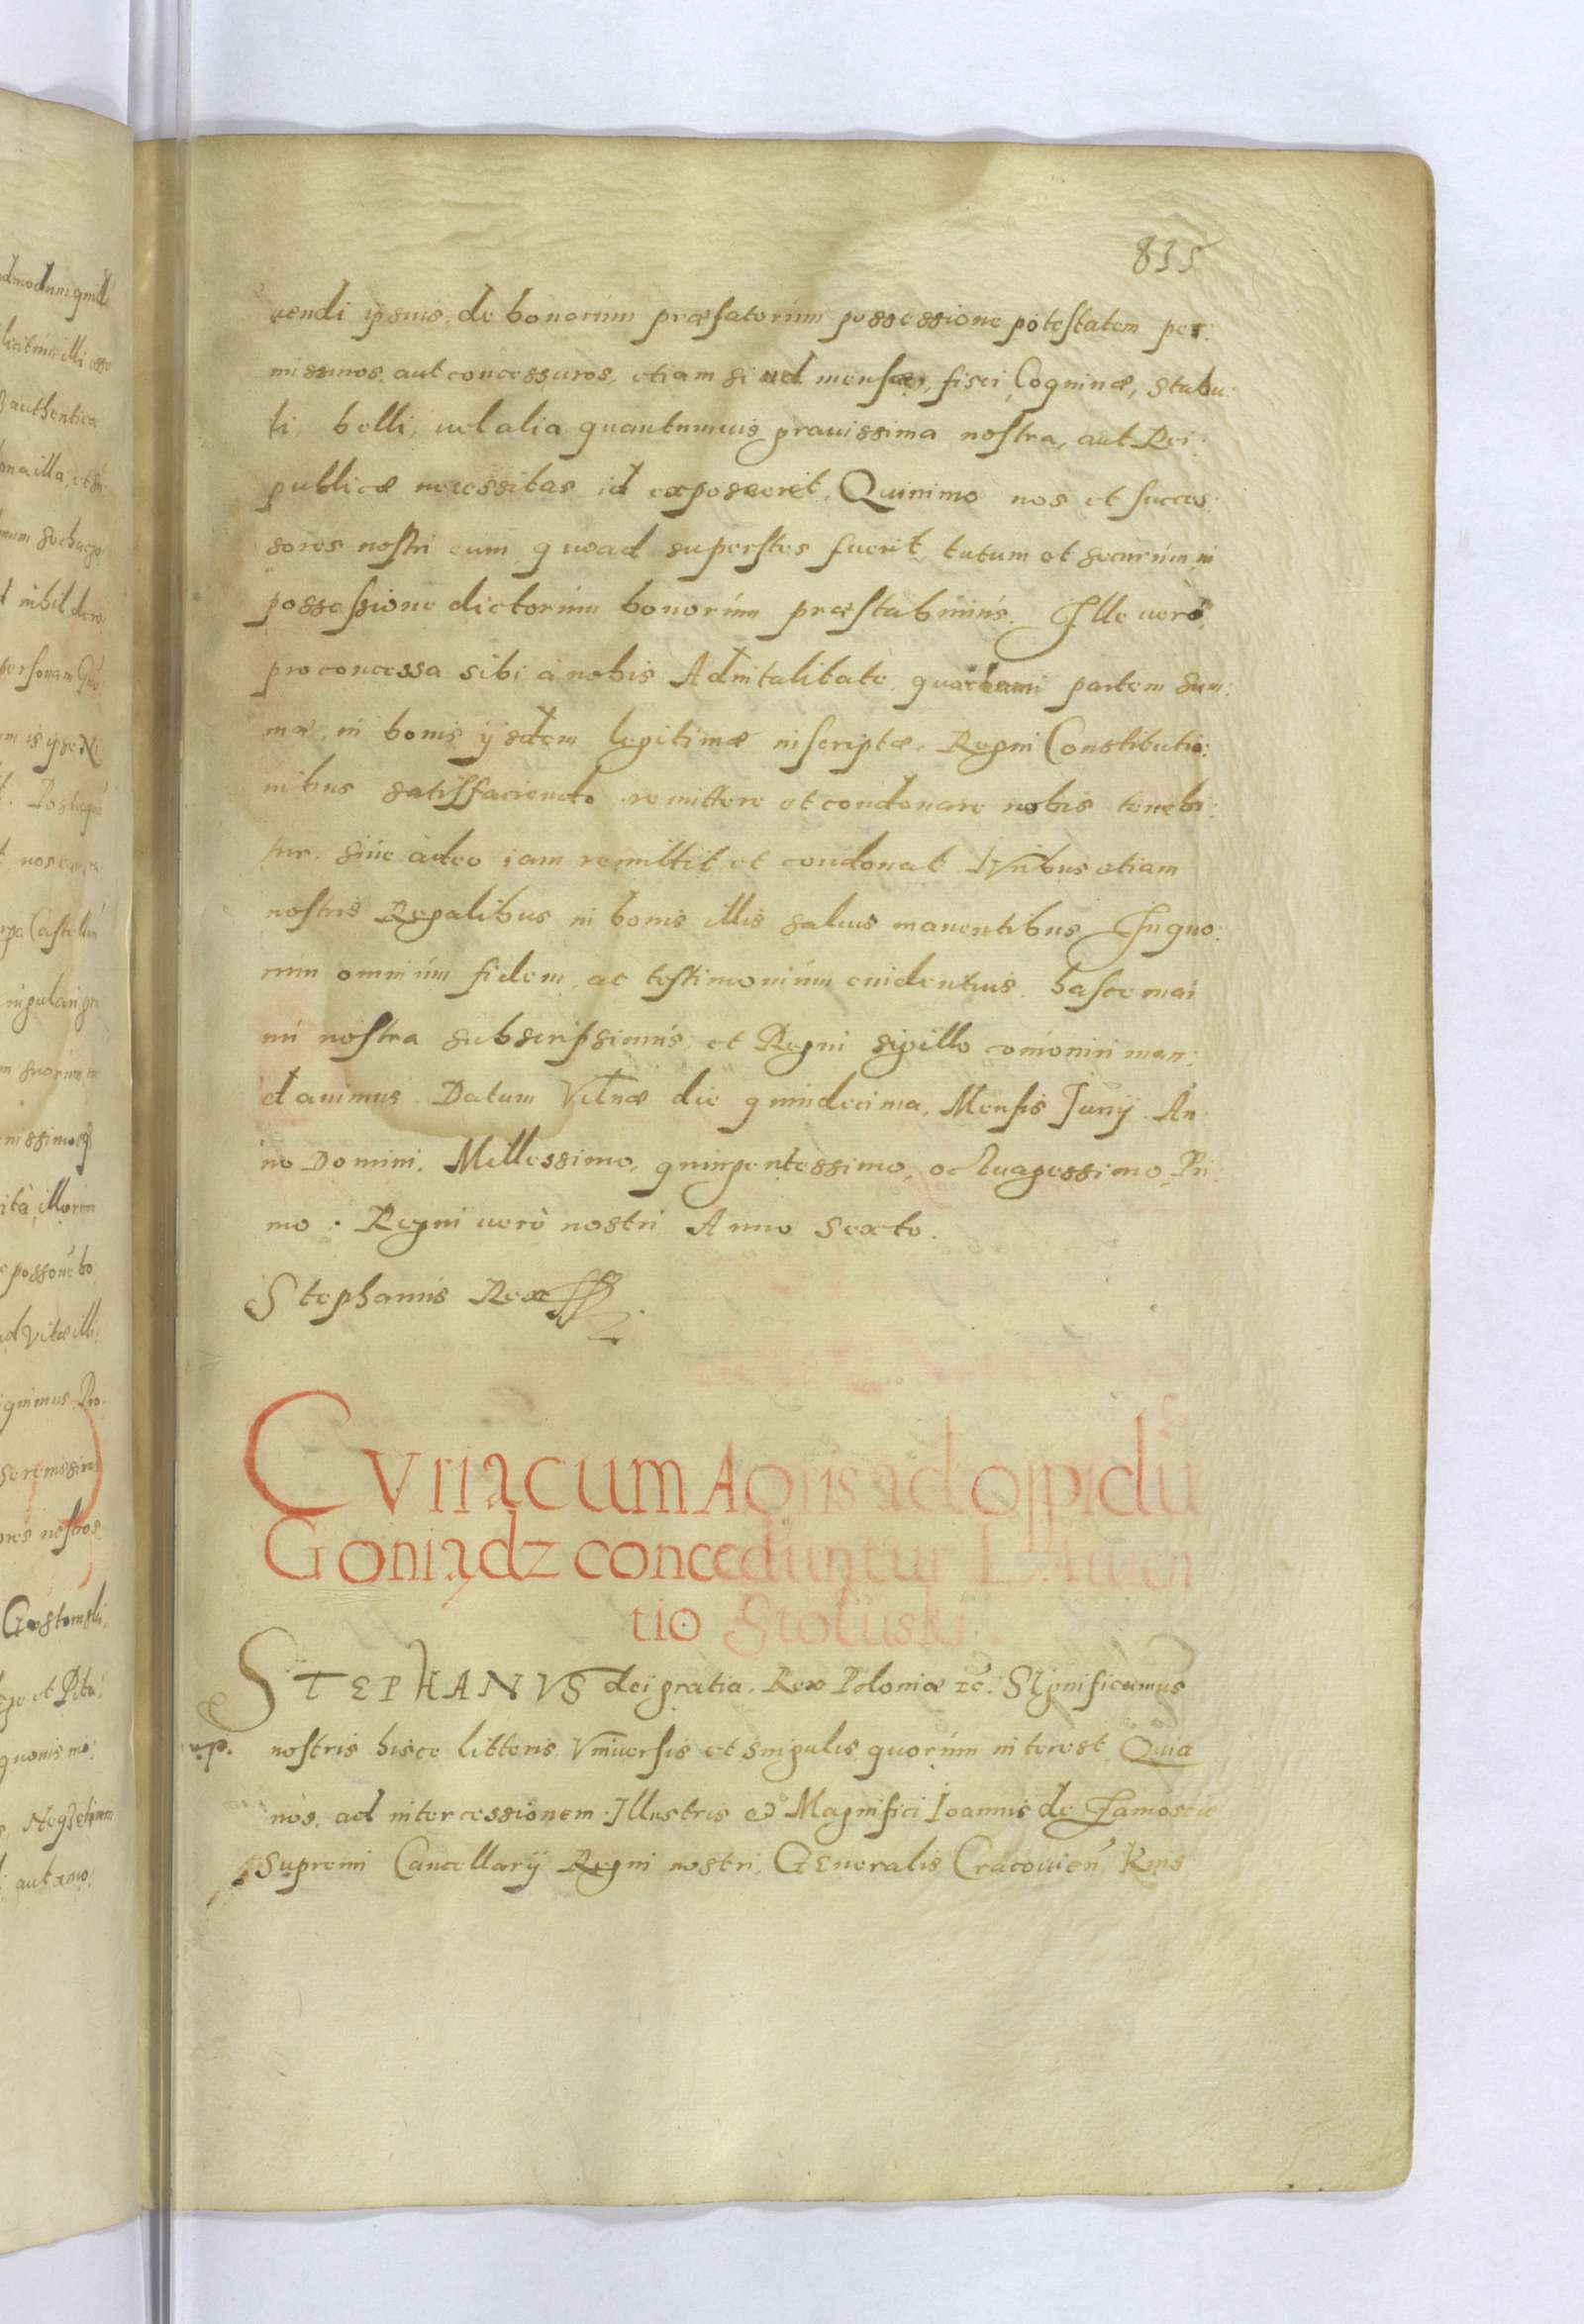 835
uendi ipsius, de bonorum præfatorum possessione potestatem per:
missuros, aut concessuros, etiam si uel mensæ, fisci, Coquinæ, Stabu:
li, belli, uel alia quantumuis grauissima nostra, aut Rei:
publicæ necessitas id exposceret, Quinimo nos et succes:
sores nostri eum quoad superstes fuerit, tutum et securum in
possessione dictorum bonorum præstabimus. Ille uerò
pro concessa sibi à nobis Aduitalitate, quartam partem sum:
mæ, in bonis ijsdem legitimæ inscriptæ, Regni Constitutio:
nibus satisfaciendo remittere et condonare nobis tenebi:
tur, siue adeo iam remittit et condonat Iuribus etiam
nostris Regalibus in bonis illis saluis manentibus. In quo:
rum omnium fidem, ac testimonium euidentius, hasce ma:
nu nostra subscripsimus, et Regni sigillo com̃oniri man:
dauimus. Datum Vilnæ die quindecima, Mensis Junij. An:
no Domini. Millessimo, quingentessimo, octuagessimo, Pri:
mo. Regni uerò nostri Anno Sexto.
Stephanus Rex
Curia cum Agris ad oppidũ
Goniądz conceduntur Lauren
tio Stoluskj
STEPHANVS dei gratia, Rex Poloniæ ꝛc̃: Significamus
nostris hisce litteris Vniuersis et singulis quorum interest. Quia
nos, ad intercessionem Illustris et Magnifici Ioannis de Zamoscie
Supremi Cancellarij Regni nostri, Generalis Cracouień
admodum
authentica
ona illa, et
nihil
personam
Castellan
illorum
ad Vitæ illi:
nostros
Gostomski
aut